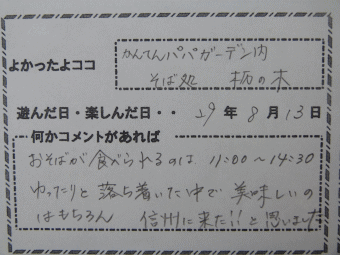 よかったよココ
かんてんパパガーデン内
そば処 栃の木
遊んだ日・楽しんだ日・・ 29年 8月 13日
何かコメントがあれば
おそばが食べられるのは 11:00~14:30
ゆったりと落ち着いた中で 美味しいの
はもちろん 信州に来た!!と思いました